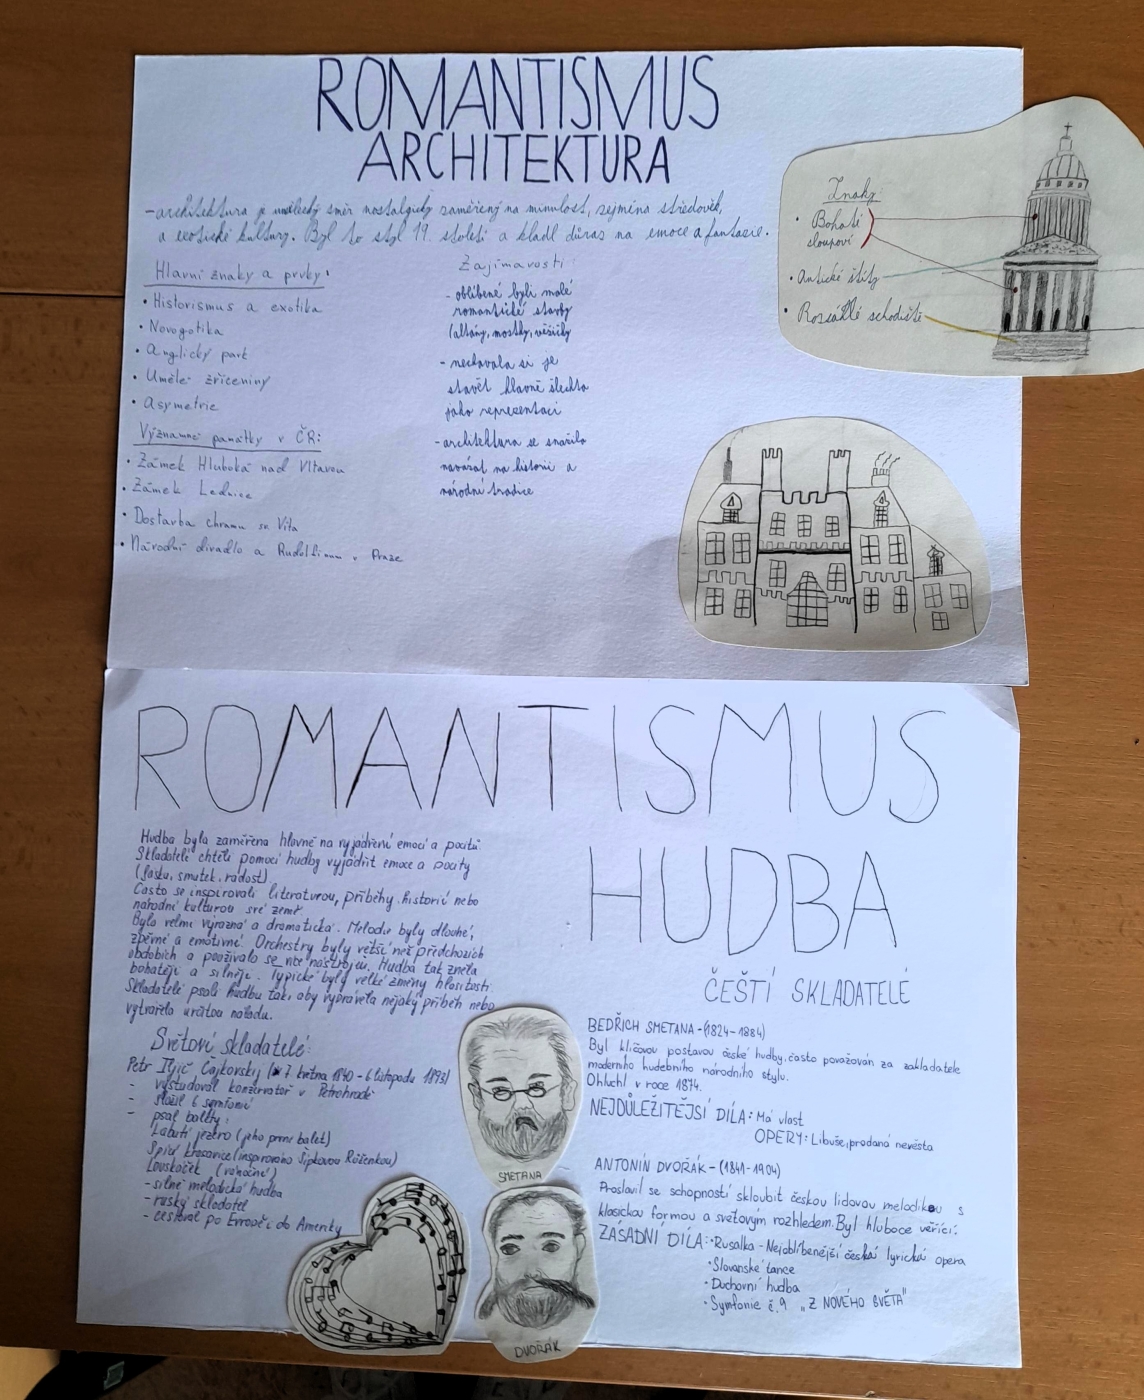 ROMANTISMUS
ARCHITEKTURA
-architektura je umělecký směr nostalgicky zaměřený na minulost, zejména středověk,
a exotické kultury. Byl to styl 19. století a kladl důraz na emoce a fantasie.
Hlavní znaky a prvky:
• Historismus a exotika
• Novogotika
• Anglický park
• Umělé zříceniny
• Asymetrie
Významné památky v ČR:
• Zámek Hluboká nad Vltavou
• Zámek Lednice
• Dostavba chramu sv. Víta
• Národní divadlo a Rudolfinum v Praze
Zajímavosti:
- oblíbené byli malé
romantické stavby
(altány, mostky, věžičky
- nechavala si je
stavět hlavně šlechta
jako reprezentaci
-architektura se snažila
navázat na historii a
národní tradice
Znaky:
• Bohatě
sloupoví
• Antické štíty
• Rozsáhlé schodiště
ROMANTISMUS
HUDBA
Hudba byla zaměřena hlavně na vyjádření emocí a pocitů
Skladatelé chtěli pomocí hudby vyjádřit emoce a pocity
(lásku, smutek, radost)
Často se inspirovali literaturou, příběhy, historií nebo
národní kulturou své země.
Byla velmi výrazná a dramatická. Melodie byly dlouhé,
zpěvné a emotivné. Orchestry byly větší než předchozích
obdobích a používalo se více nástrojů. Hudba tak zněla
bohatěji a silněji. Typické byly velké změny hlasitosti.
Skladatelé psali hudbu tak, aby vyprávěla nějaký příběh nebo
vytvářela určitou náladu.
Světoví skladatelé:
Petr Iljič Čajkovskij (7. května 1840 - 6 listopadu 1893)
- vystudoval konzervatoř v Petrohradě
- složil 6 symfonií
- psal balety:
Labutí jezero (jeho první balet)
Spící krasavice (inspirováno Šípkovou Růženkou)
Louskáček (vánoční)
- silně melodická hudba
- ruský skladatel
- cestoval po Evropě i do Ameriky
SMETANA
DVOŘÁK
ČEŠTÍ SKLADATELÉ
BEDŘICH SMETANA -(1824-1884)
Byl klíčovou postavou české hudby, často považován za zakladatele
moderního hudebního národního stylu.
Ohluchl v roce 1874.
NEJDŮLEŽITĚJŠÍ DÍLA: Má vlast
OPERY: Libuše, prodaná nevěsta
ANTONÍN DVOŘÁK - (1841-1904)
Proslavil se schopností skloubit českou lidovou melodikou s
klasickou formou a světovým rozhledem. Byl hluboce věřící.
ZÁSADNÍ DÍLA: • Rusalka - Nejoblíbenější česká lyrická opera
• Slovanské tance
• Duchovní hudba
• Symfonie č. 9 „Z NOVÉHO SVĚTA"